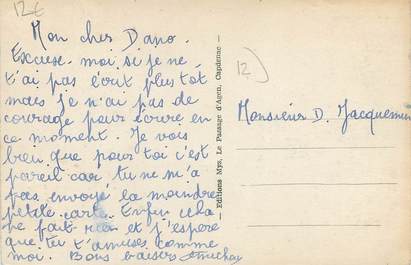 12€
Mon cher Dano.
Excuse moi si je ne
t'ai pas écrit plus tôt
mais je n'ai pas de
courage pour écrire en
ce moment. Je vois
bien que pour toi c'est
pareil car tu ne m'a
pas envoyé la moindre
petite carte. Enfin cela
ne fait rien et j'espère
que tu t'amuses comme
moi. Bons baisers
Editions Mys, Le Passage d'Agen, Capdenac
12
Monsieur D. Jacquemin